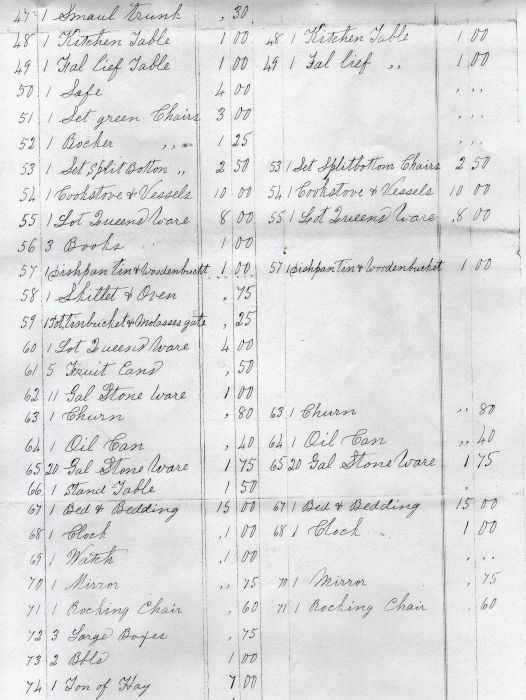 47 1 Smaul trunk . 30
48 1 Kitchen Table 1 00 48 1 Kitchen Table 1 00
49 1 Fal lief Table 1 00 49 1 Fal lief " 1 00
50 1 Safe 4 00 . . .
51 1 Set green Chairs 3 00 . . .
52 1 Rocker " 1 25 . . .
53 1 Set Split Bottom " 2 50 53 1 Set Splitbottom Chairs 2 50
54 1 Cookstove & Vessels 10 00 54 1 Cookstove & Vessels 10 00
55 1 Lot Queens Ware 8 00 55 1 Lot Queens Ware 8 00
56 3 Books 1 00
57 1 Dishpan tin & Woodenbucket 1 00 57 1 Dishpan tin & Woodenbucket 1 00
58 1 Skillet & Oven . 75
59 1 Lot tinbucket & Molasses gate . 25
60 1 Lot Queens Ware 4 00
61 5 Fruit Cans . 50
62 11 Gal Stone ware 1 00
63 1 Churn . 80 63 1 Churn " 80
64 1 Oil Can . 40 64 1 Oil Can " 40
65 20 Gal Stone Ware 1 75 65 20 Gal Stone Ware 1 75
66 1 Stand Table 1 50 .
67 1 Bed & Bedding 15 00 67 1 Bed & Bedding 15 00
68 1 Clock . 1 00 68 1 Clock 1 00
69 1 Watch . 1 00 . . .
70 1 Mirror " 75 70 1 Mirror . 75
71 1 Rocking Chair . 60 71 1 Rocking Chair . 60
72 3 Large Boxes . 75
73 2 Bbls 1 00
74 1 Ton of Hay 7 00